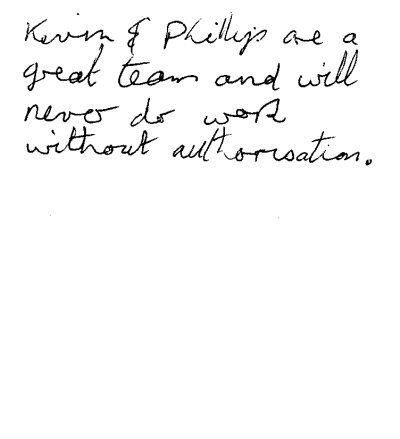 Kevin & Phillip are a
great team and will
never do work
without authorisation.